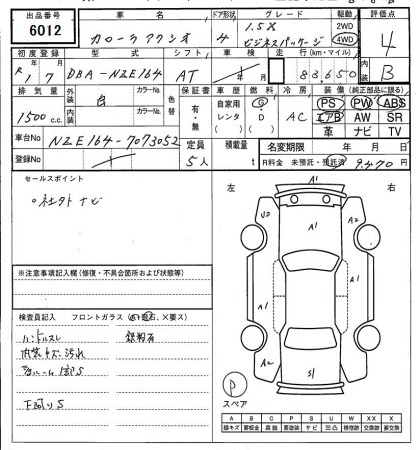 出品番号 車名 ドア形状 グレード 駆動 評価点
6012 カローラアクシオ 4 1.5X ビジネスパッケージ 2WD 4WD 4
初度登録 型式 シフト 車検 走行(km・マイル) 内装
R1/7 DBA-NZE164 AT 83,650 B
排気量 外装 カラーNo. 色替 保証書 車歴 燃料 冷房 装備(純正部品に限る)
1500 c.c. 白 有・無 自家用 レンタ G・D AC PS PW ABS
内装 カラーNo. エアB AW SR
革 ナビ TV
車台No NZE164-7073052 定員 積載量 名変期限 年 月 日
登録No 5人 t R料金 未預託・預託済 9,470
セールスポイント
○社外ナビ
左 右
※注意事項記入欄(修復・不具合箇所および状態等)
検査員記入 フロントガラス(A飛石、×要ス)
ハンドルスレ 鉄粉有
内装キズ・汚れ
下廻りS
A1
U2 A1
A1 A1
A2 S1
P
スペア
A B C P S U W X XX
線キズ 要板金 腐蝕 要塗装 サビ 凹凸 補修跡 要交換 交換済